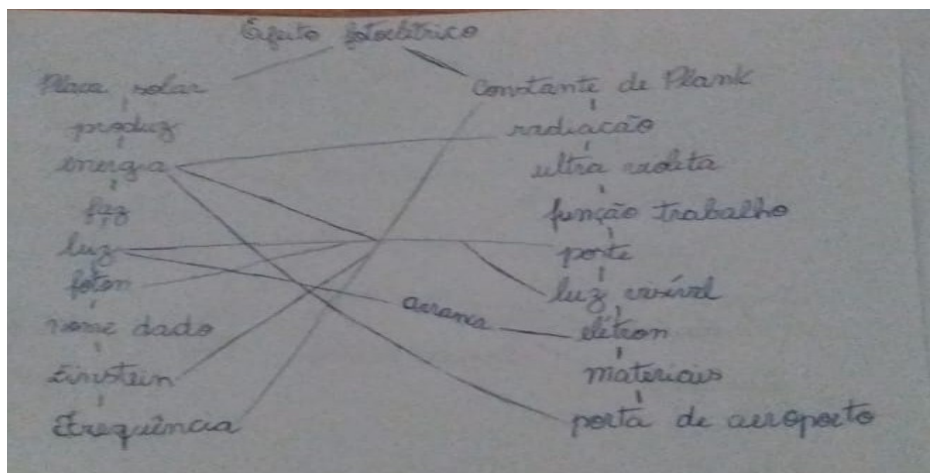 Efeito fotoelétrico
Placa solar
produz
energia
faz
luz
foton
nome dado
Einstein
Frequência
arranca
Constante de Plank
radiacão
ultra violeta
função trabalho
ponte
luz visível
elétron
materiais
porta de aeroporto